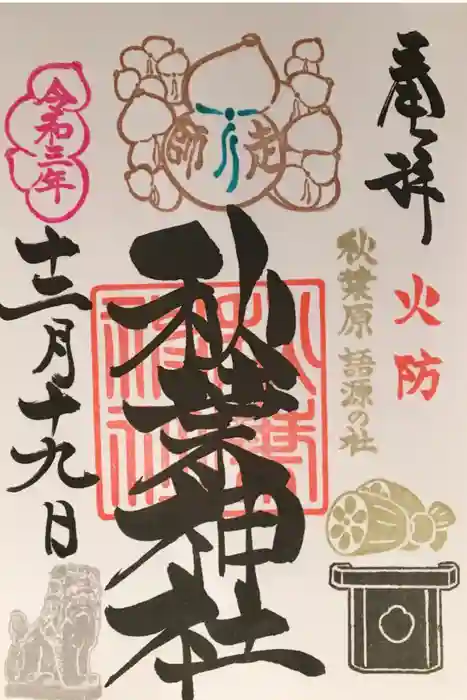 奉拝
火防
秋葉原 語源の社
師走
秋葉神社
令和三年
十二月十九日